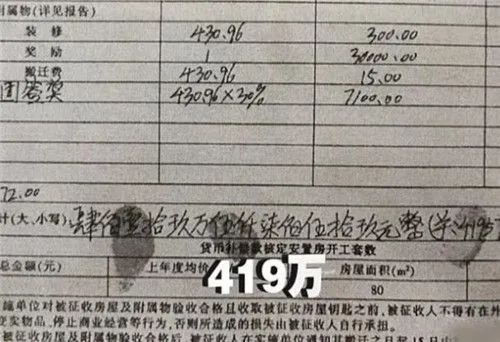 附属物(详见报告)
装修 430.96 300.00
奖励 1 30000.00
搬迁费 430.96 15.00
团签奖 430.96×30% 7100.00
72.00
计(大、小写): 肆佰壹拾玖万伍仟柒佰伍拾玖元整
货币补偿款核定安置房开工套数
总金额(元) 上年度均价 房屋面积(m²)
419万
80
施单位对被征收房屋及附属物验收合格且收取被征收房屋钥匙之前,被征收人不得有在外
变卖物品、停止商业经营等行为,否则所造成的损失由被征收人自行承担。
收房屋及附属物验收合格后,被征收人在实施单位通知其搬迁之日起15日内